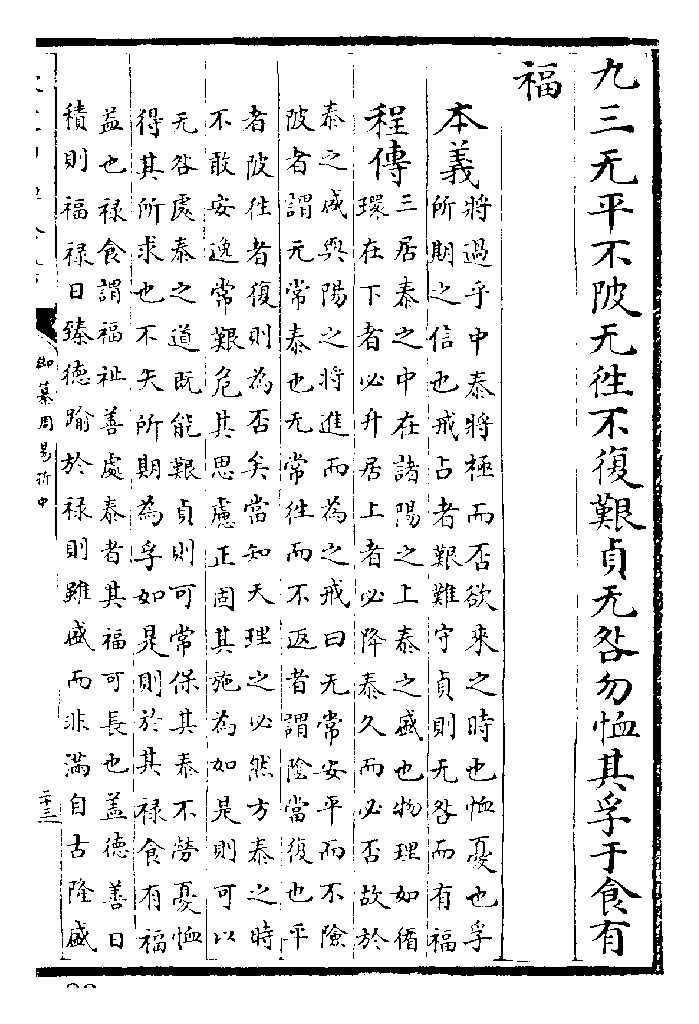 九三无平不陂无往不復艱貞无咎勿恤其孚于食有
福
本義
將過乎中泰將極而否欲來之時也恤憂也孚
所期之信也戒占者艱難守貞則无咎而有福
程傳
三居泰之中在諸陽之上泰之盛也物理如循
環在下者必升居上者必降泰久而必否故於
泰之盛與陽之將進而為之戒曰无常安平而不險
陂者謂无常泰也无常往而不返者謂陰當復也平
者陂往者復則為否矣當知天理之必然方泰之時
不敢安逸常艱危其思慮正固其施為如是則可以
无咎處泰之道既能艱貞則可常保其泰不勞憂恤
得其所求也不失所期為孚如是則於其祿食有福
益也祿食謂福祉善處泰者其福可長也蓋德善日
積則福祿日臻德踰於祿則雖盛而非滿自古隆盛
御纂周易折中
二十三